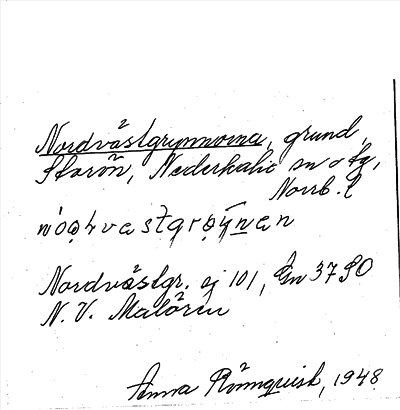 Nordvästgrynnorna, grund,
Storön, Nederkalix sn o tg,
Norrb. l
Nordvästgr. ej 101, Än 37 SO
N. V. Malören
Anna Rönnquist, 1948